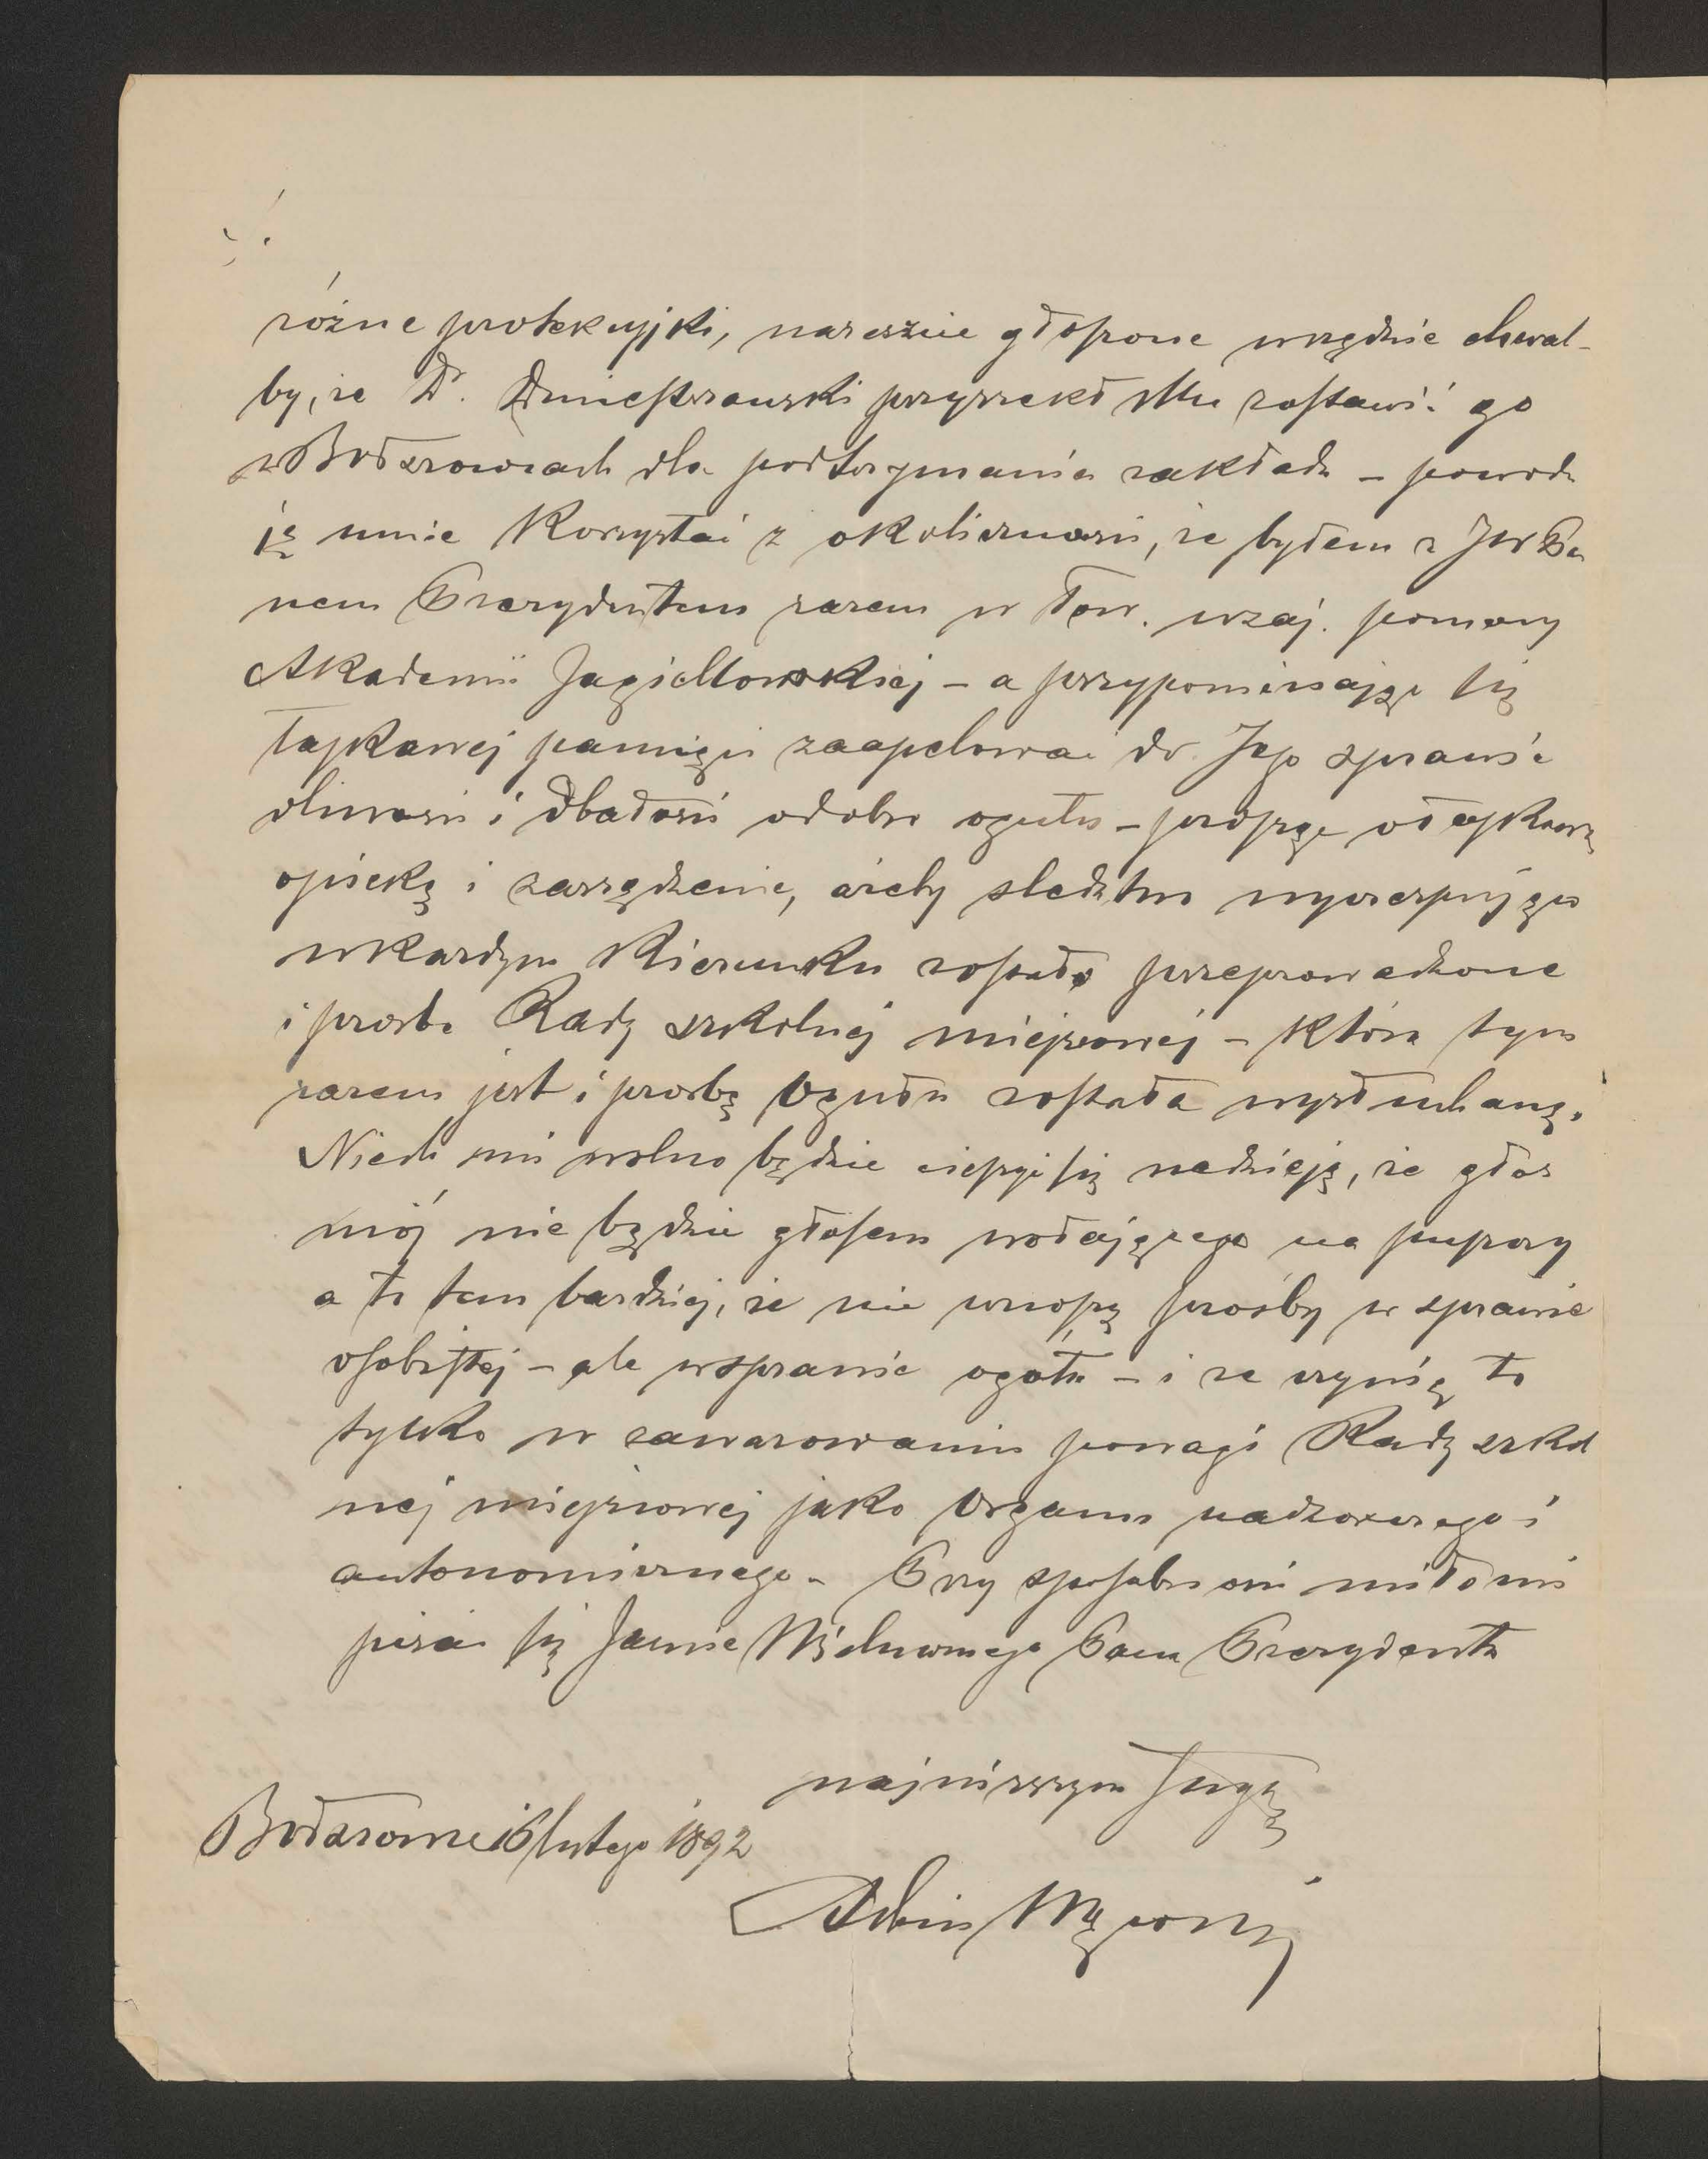 różne protekcyjki, nareszcie głoszone wszędzie chwal-
by, że Dr. Dniestrzański przyrzekł Mu zostawić go
w Bołszowcach dla podtrzymania zakładu – powodu
ją mnie korzystać z okoliczności, że byłem z JWPa
nem Prezydentem razem w Tow. wzaj. pomocy
Akademii Jagiellońskiej – a przypominając się
łaskawej pamięci zaapelować do Jego sprawie
dliwości i dbałości o dobro ogółu – prosząc o łaskawą
opiekę i zarządzenie, ażeby śledztwo wyczerpująco
w każdym kierunku zostało przeprowadzone
i prośba Rady szkolnej miejscowej – która tym
razem jest i prośbą Ogółu została wysłuchaną.
Niech mi wolno będzie cieszyć się nadzieją, że głos
mój nie będzie głosem wołającego na puszczy
a to tem bardziej, że nie wnoszę prośby w sprawie
osobistej – ale w sprawie ogółu – i że czynię to
tylko w zawarowaniu powagi Rady szkol
nej miejscowej jako Organu nadzorczego i
autonomicznego – Przy sposobności miło mi
pisać się Jaśnie Wielmożnego Pana Prezydenta
najniższym sługą
Bołszowce 16 lutego 1892